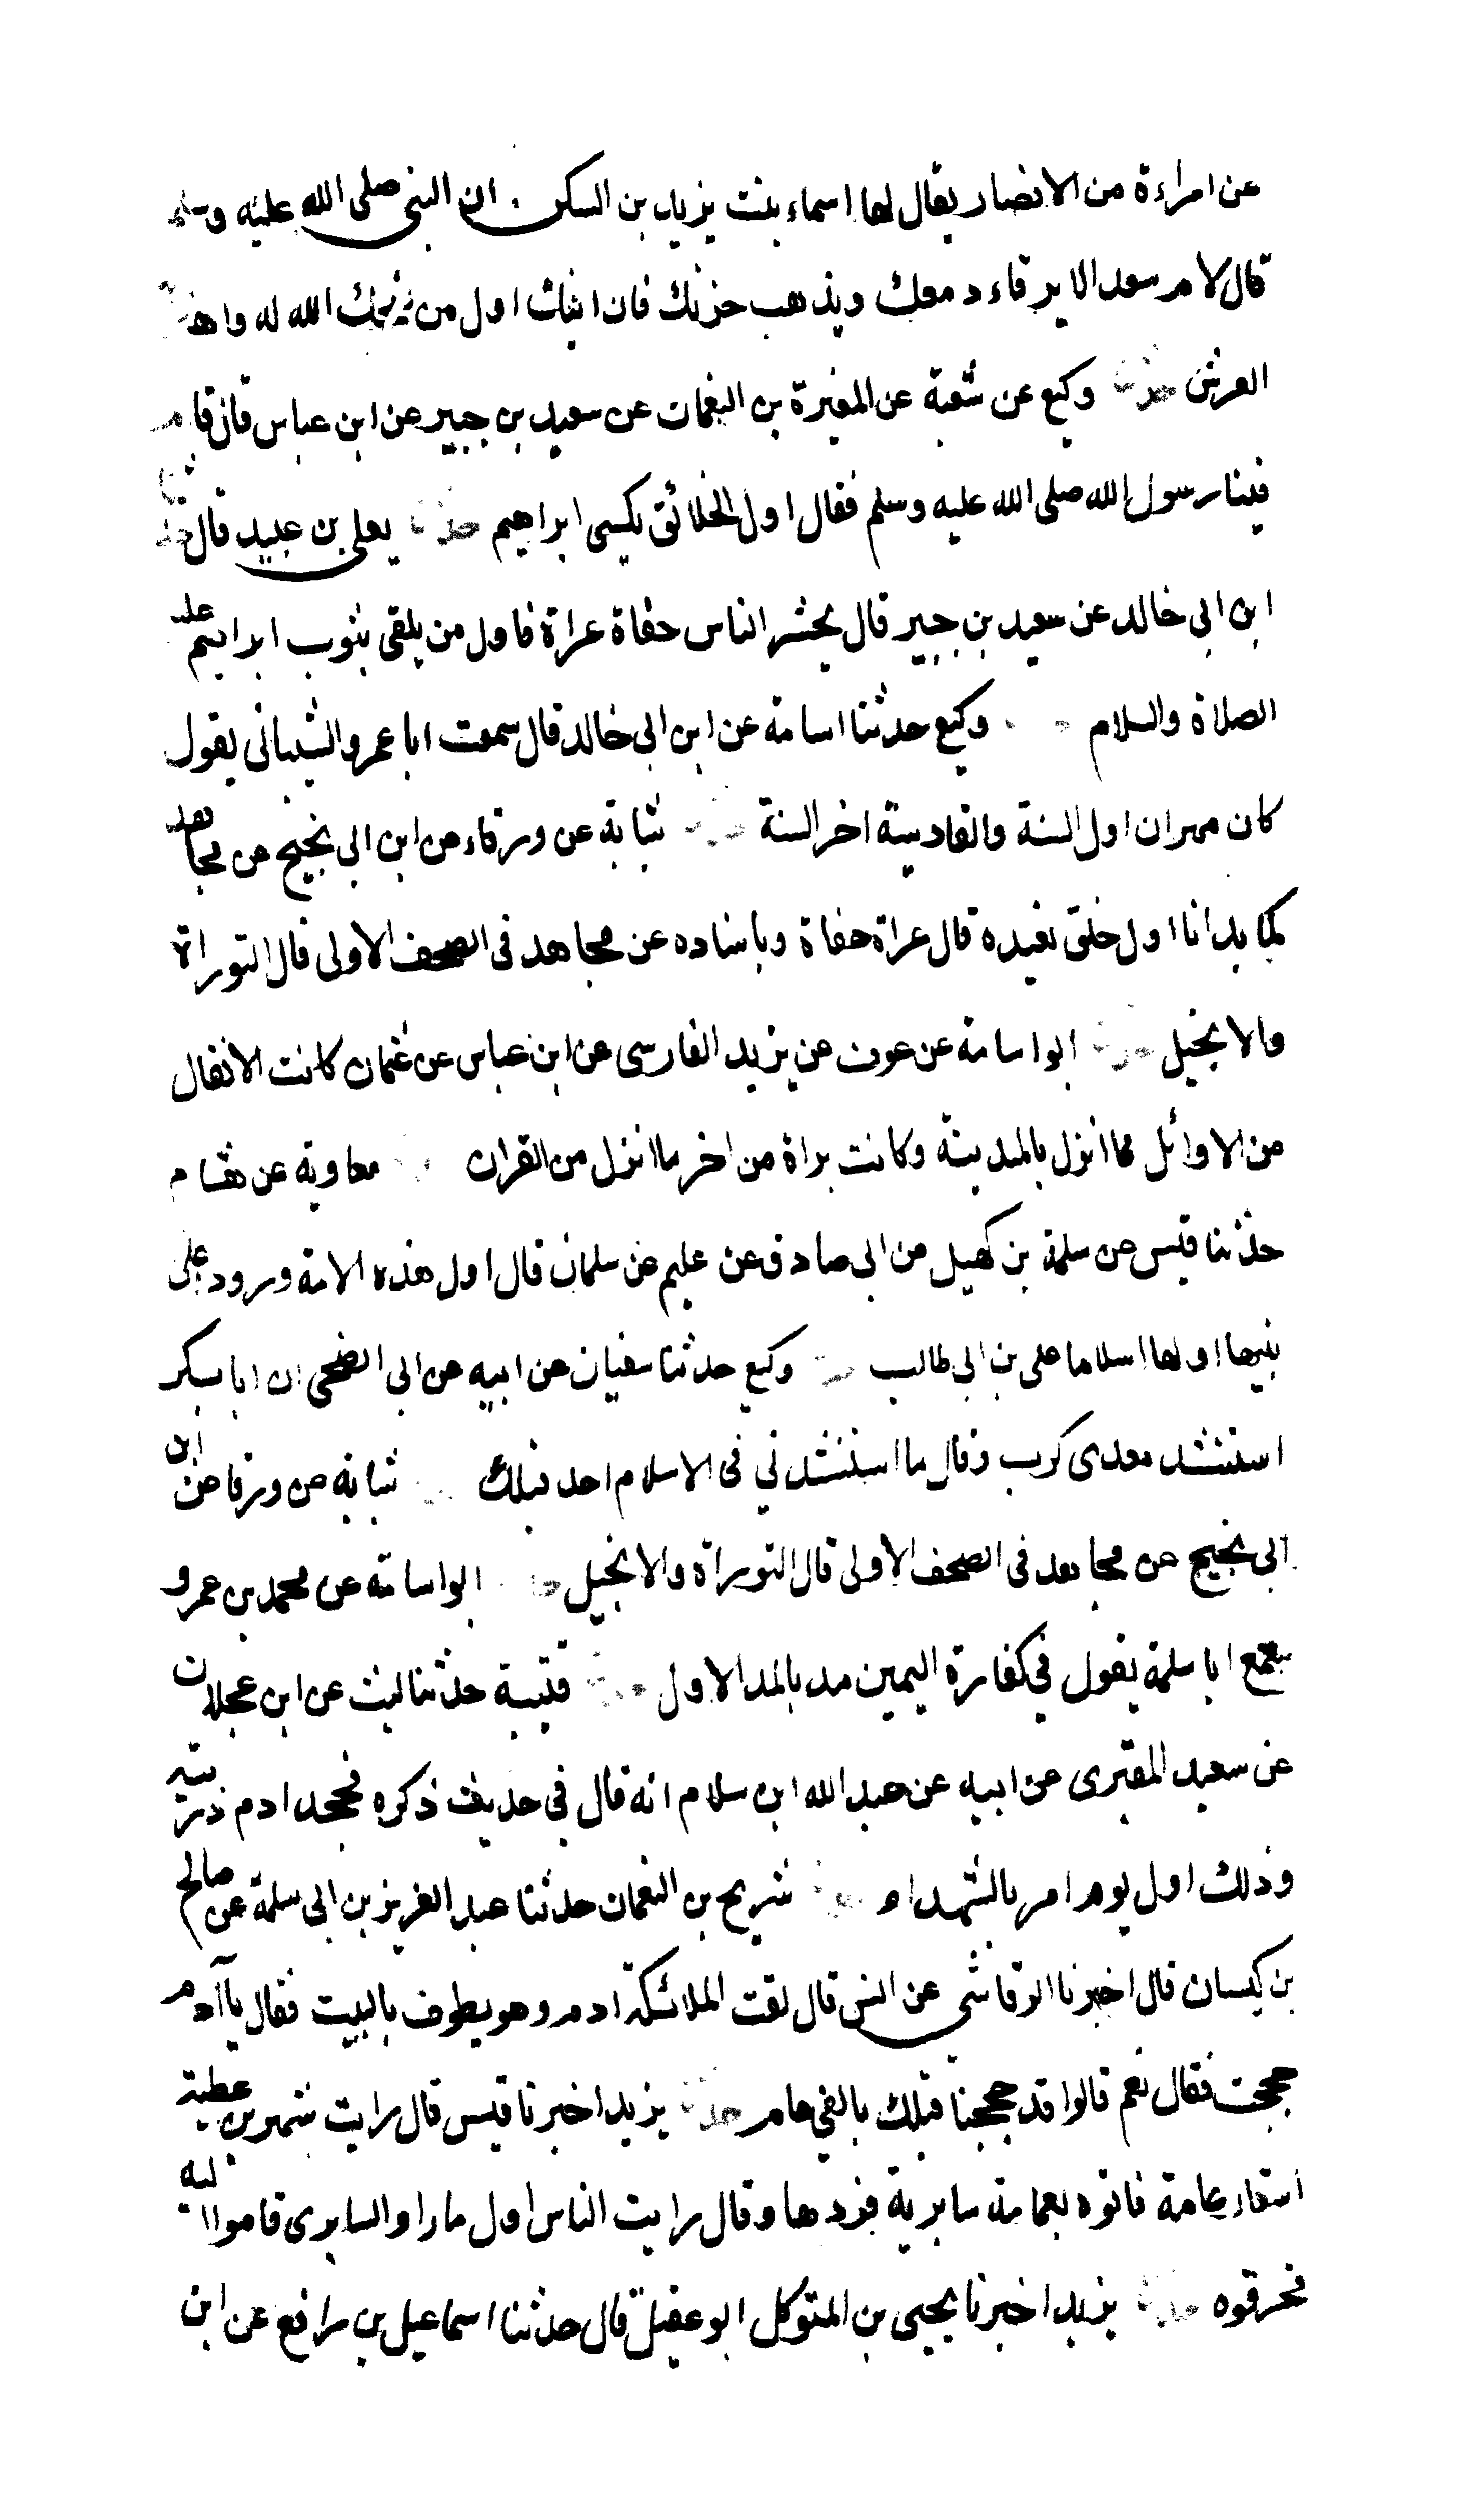 عن امراءة من الانصار يقال لها اسماء بنت يزيد بن السكن ان النبي صلى الله عليه وسلم
قال لام سعد الا يرقاء دمعك ويذهب حزنك فان ابنك اول من ضحك الله له واهتز
العرش حدثنا وكيع عن شعبة عن المغيرة بن النعمان عن سعيد بن جبير عن ابن عباس قال قام
فينا رسول الله صلى الله عليه وسلم فقال اول الخلائق يكسى ابراهيم حدثنا يعلى بن عبيد قال حدثنا
ابن ابي خالد عن سعيد بن جبير قال يحشر الناس حفاة عراة فاول من يلقى بثوب ابراهيم عليه
الصلاة والسلام وكيع حدثنا اسامة عن ابن ابي خالد قال سمعت ابا عمرو الشيباني يقول
كان مهران اول السنة والقادسية اخر السنة حدثنا شبابة عن ورقاء عن ابن ابي نجيح عن مجاهد
كما بدانا اول خلق نعيده قال عراة حفاة وباسناده عن مجاهد في الصحف الاولى قال التوراة
والانجيل حدثنا ابو اسامة عن عوف عن يزيد الفارسى عن ابن عباس عن عثمان كانت الانفال
من الاوائل مما انزل بالمدينة وكانت براة من اخر ما انزل من القران معاوية عن هشام
حدثنا قيس عن سلمة بن كهيل عن ابي صادق عن عليم عن سلمان قال اول هذه الامة ورود على
نبيها اولها اسلاما على بن ابي طالب حدثنا وكيع حدثنا سفيان عن ابيه عن ابي الضحى ان ابا بكر
استنشد معدى كرب وقال ما استنشدني في الاسلام احد قبلك شبابة عن ورقا عن ابن
ابي نجيح عن مجاهد في الصحف الاولى قال التوراة والانجيل حدثنا ابو اسامة عن محمد بن عمرو
سمع ابا سلمة يقول في كفارة اليمين مد بالمد الاول حدثنا قتيبة حدثنا ليث عن ابن عجلان
عن سعيد المقبرى عن ابيه عن عبد الله ابن سلام انه قال في حديث ذكره فجحد ادم ذريته
وذلك اول يوم امر بالشهداء حدثنا شريح بن النعمان حدثنا عبد العزيز بن ابي سلمة عن صالح
بن كيسان قال اخبرنا الرقاشى عن انس قال لقت الملائكة ادم وهو يطوف بالبيت فقال يا آدم
حججت فقال نعم قالوا قد حججنا قبلك بالفي عام حدثنا يزيد اخبرنا قيس قال رايت شمر بن عطية
استعار عمامة فاتوه بعمامة سابرية فردها وقال رايت الناس اول ما راو السابرى قاموا اليه
فحرقوه حدثنا يزيد اخبرنا يحيى بن المتوكل ابو عقيل قال حدثنا اسماعيل بن رافع عن ابن